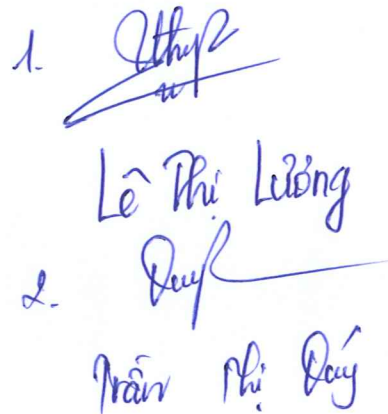 1.
Lê Thị Lương
2.
Trần Thị Quý